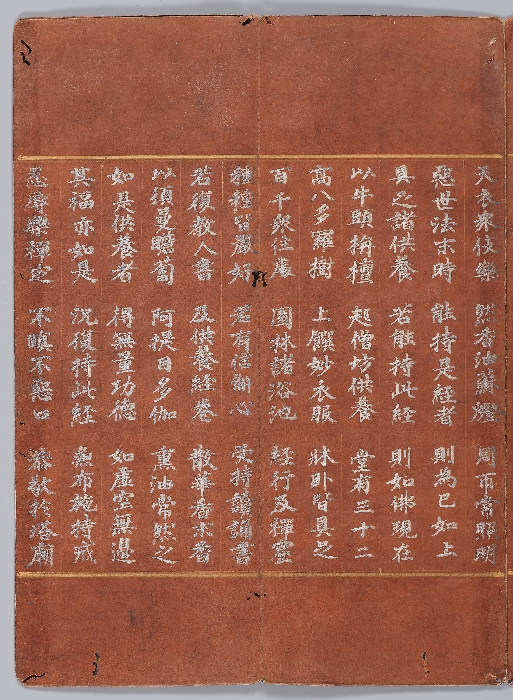 天衣衆伎樂 然香油蘇燈 周帀常照明
惡世法末時 能持是經者 則為已如上
具之諸供養 若能持此經 則如佛現在
以牛頭栴檀 起僧坊供養 堂有三十二
高八多羅樹 上饌妙衣服 牀臥皆具足
百千衆住處 園林諸浴池 經行及禪窟
種種皆嚴好 若有信解心 受持讀誦書
若復教人書 及供養經卷 散華香末香
以須曼瞻蔔 阿提目多伽 熏油常然之
如是供養者 得無量功德 如虛空無邊
其福亦如是 況復持此経 兼布施持戒
忍辱樂禪定 不瞋不惡口 恭敬於塔廟